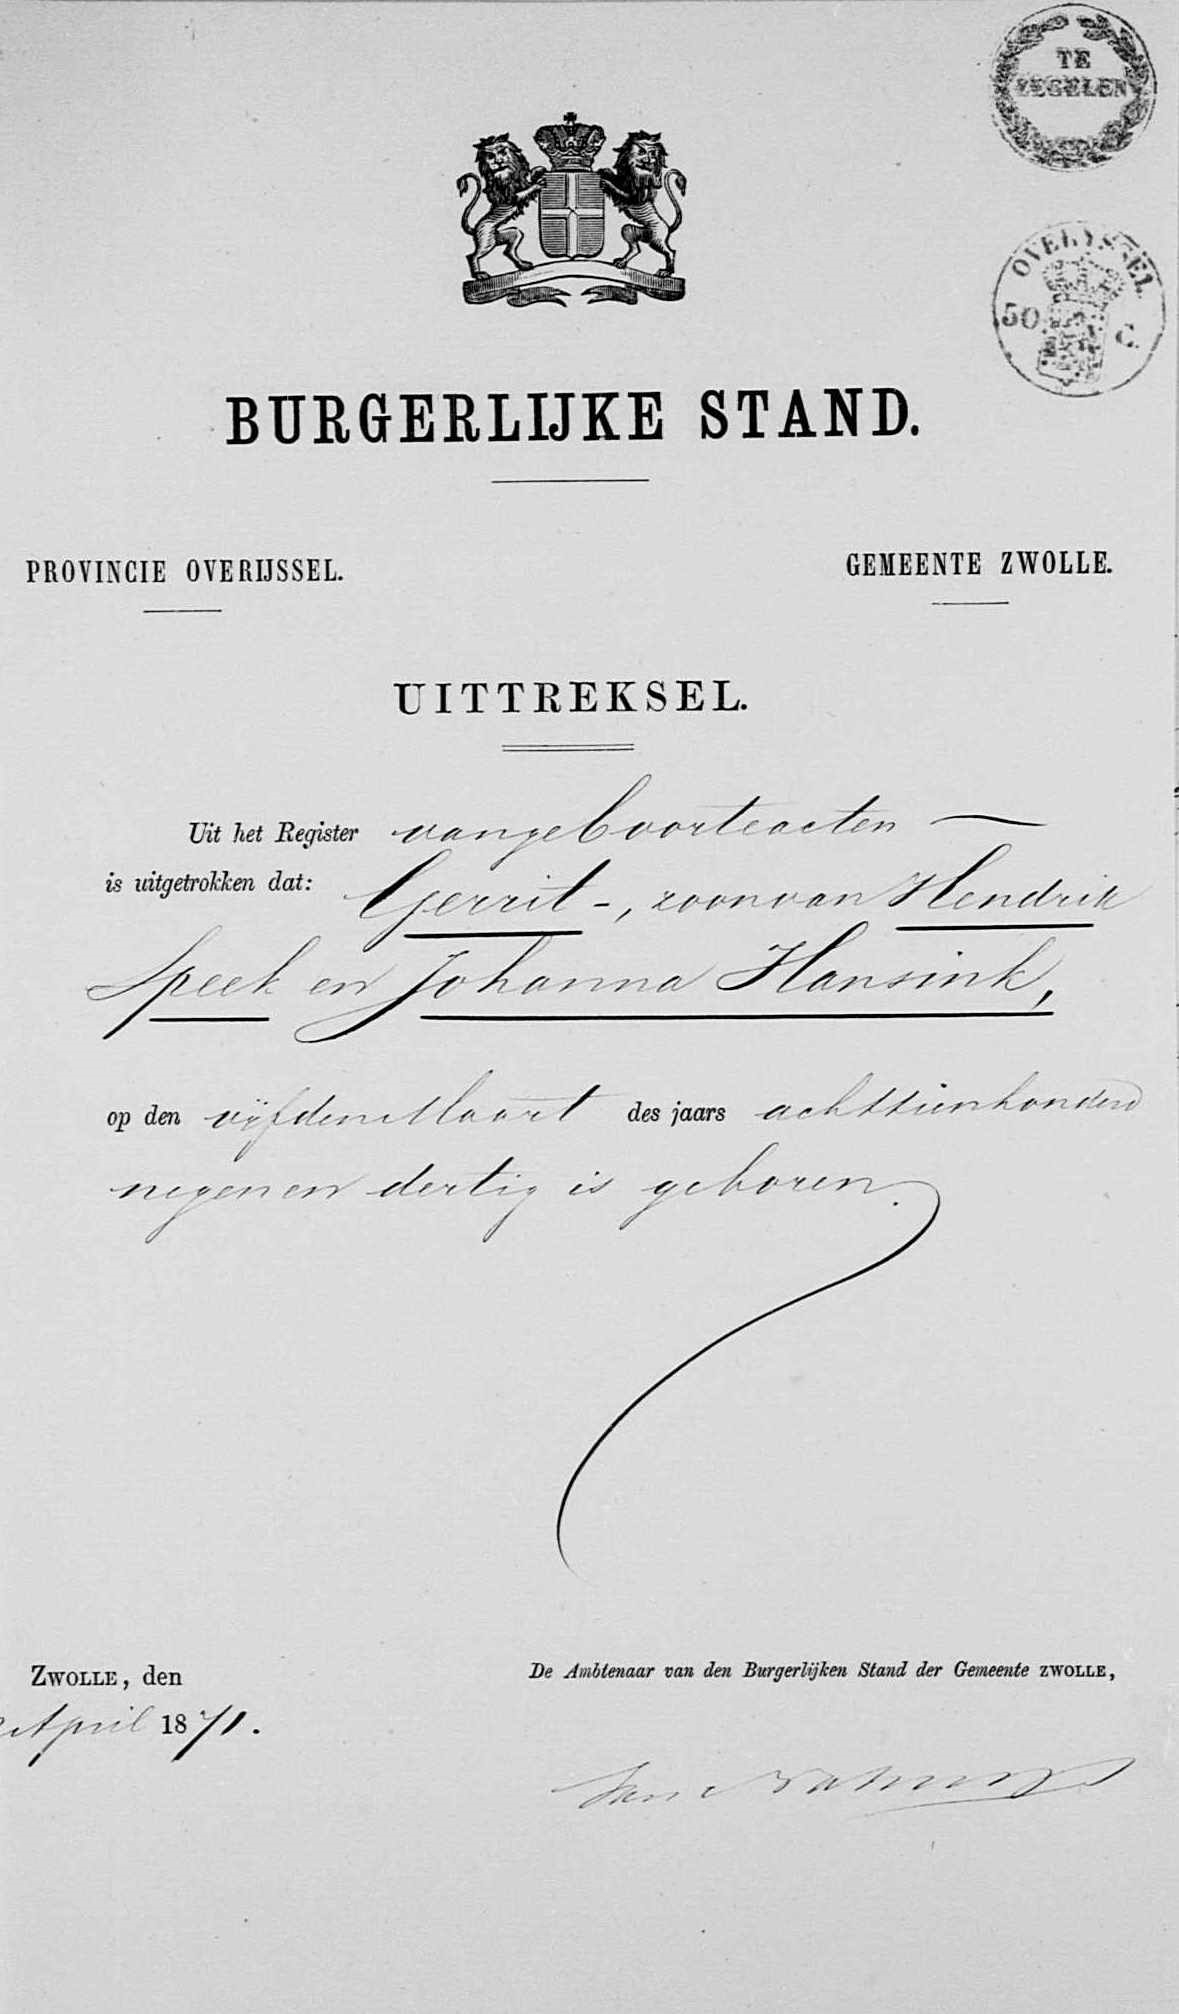 TE
ZEGELEN
OVERYSSEL
50 C.
BURGERLIJKE STAND.
PROVINCIE OVERIJSSEL. GEMEENTE ZWOLLE.
UITTREKSEL.
Uit het Register van geboorteacten
is uitgetrokken dat: Gerrit -, zoon van Hendrik
Speek en Johanna Hansink,
op den vijfden Maart des jaars achttienhonderd
negen en dertig is geboren.
ZWOLLE, den De Ambtenaar van den Burgerlijken Stand der Gemeente ZWOLLE,
April 1871.